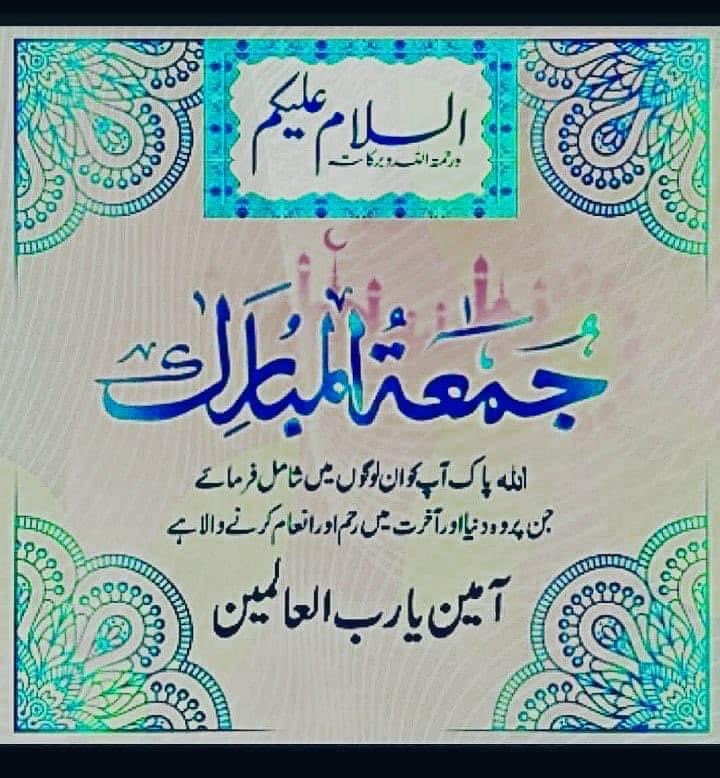 السلام علیکم
ورحمۃ اللہ وبرکاتہ
جُمَعَةُ المُبَارَك
اللہ پاک آپ کو ان لوگوں میں شامل فرمائے
جن پر وہ دنیا اور آخرت میں رحم اور انعام کرنے والا ہے
آمین یا رب العالمین